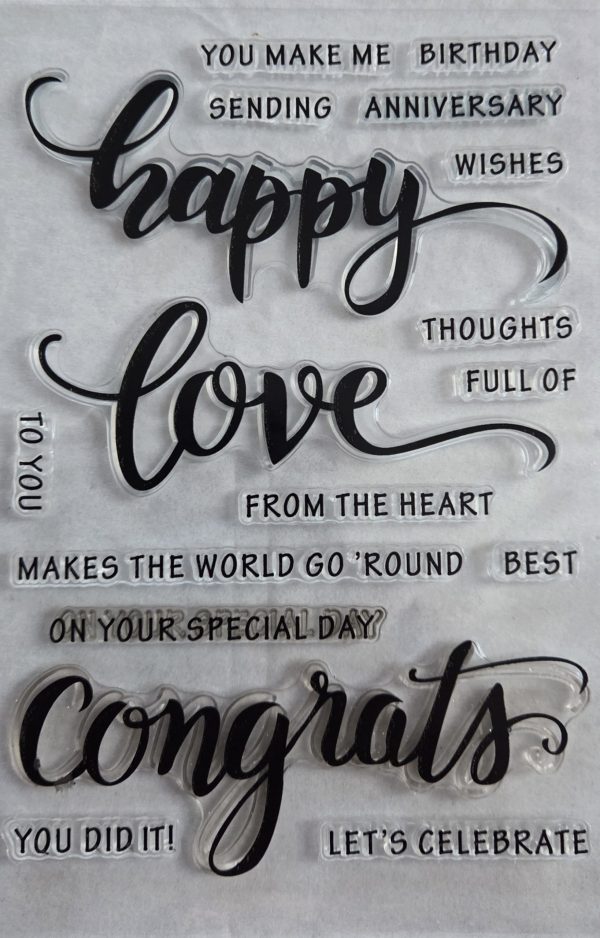 YOU MAKE ME BIRTHDAY
SENDING ANNIVERSARY
happy
WISHES
THOUGHTS
love
FULL OF
TO YOU
FROM THE HEART
MAKES THE WORLD GO 'ROUND BEST
ON YOUR SPECIAL DAY
Congrats
YOU DID IT! LET'S CELEBRATE